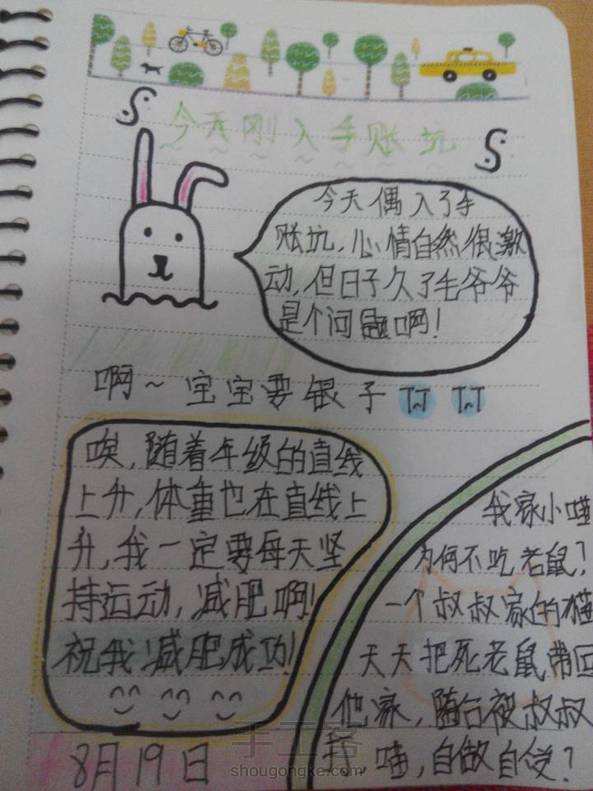 今天刚入手账坑
今天偶入了手
账坑,心情自然很激
动,但日子久了毛爷爷
是个问题啊!
啊~宝宝要银子T~T T~T
唉,随着年级的直线
上升,体重也在直线上
升,我一定要每天坚
持运动,减肥啊!
祝我减肥成功!
8月19日
我家小喵
为何不吃老鼠?
一个叔叔家的猫
天天把死老鼠带回
他家,随后被叔叔
喵,自做自受?
手工客
shougongke.com